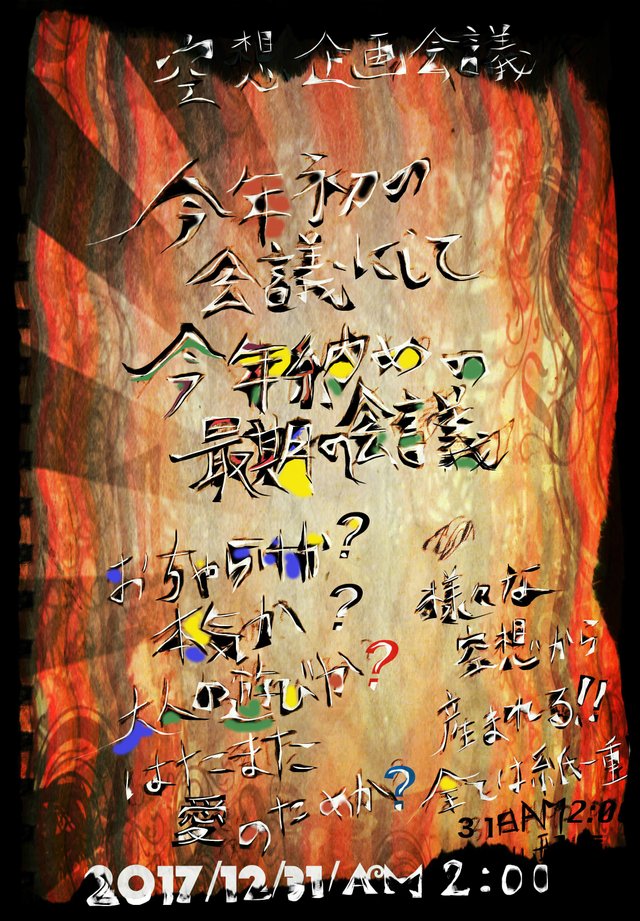 空想企画会議
今年初の
会議にして
今年納めの
最期の会議
おちゃらけか?
本気か?
大人の遊びか?
はたまた
愛のためか?
様々な
空想から
産まれる!!
全ては紙一重
31日AM2:00
2017/12/31/AM 2:00